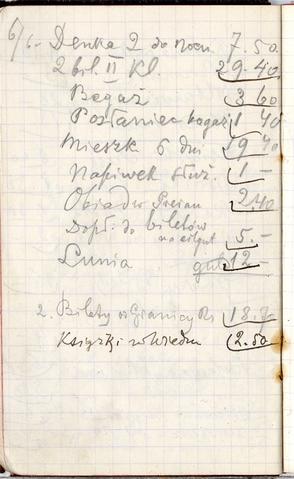 6/6. Denka 2 do Nocn 7.50
2 bil. II Kl. 29.40
Bagaż 3 60
Posłaniec bagaż 1 40
Mieszk 6 dni 19 40
Napiwek służ. 1 —
Obiad w 2.40
Dopł. do biletów
5. —
Lunia 12 —
2. Bilety z Granicy 18.
Książki w Wiedniu 2.50